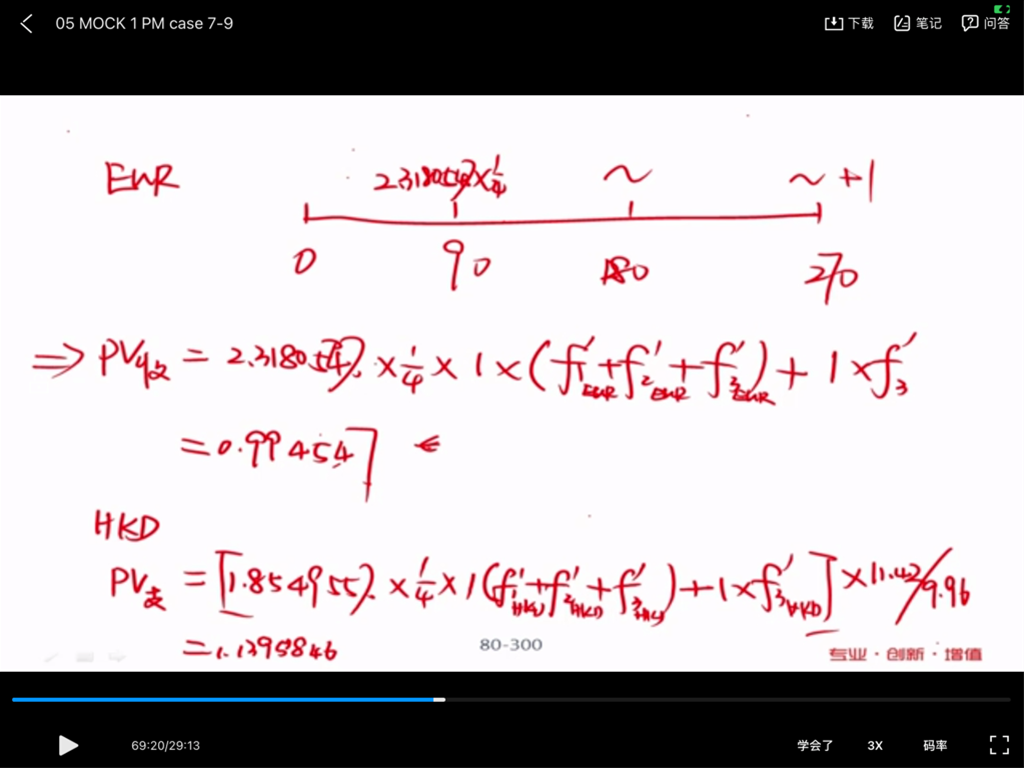 05 MOCK 1 PM case 7-9 下载 笔记 问答
EUR
2.318054%×1/4 ~ ~+1
0 90 180 270
⇒ PV收 = 2.318054% × 1/4 × 1 × (f₁'EUR + f₂'EUR + f₃'EUR) + 1 × f₃'
= 0.994547 ←
HKD
PV支 = [1.854955% × 1/4 × 1(f₁'HKD + f₂'HKD + f₃'HKD) + 1 × f₃'HKD] × 11.42/9.96
= 1.1395846
80-300
专业·创新·增值
69:20/29:13 学会了 3X 码率